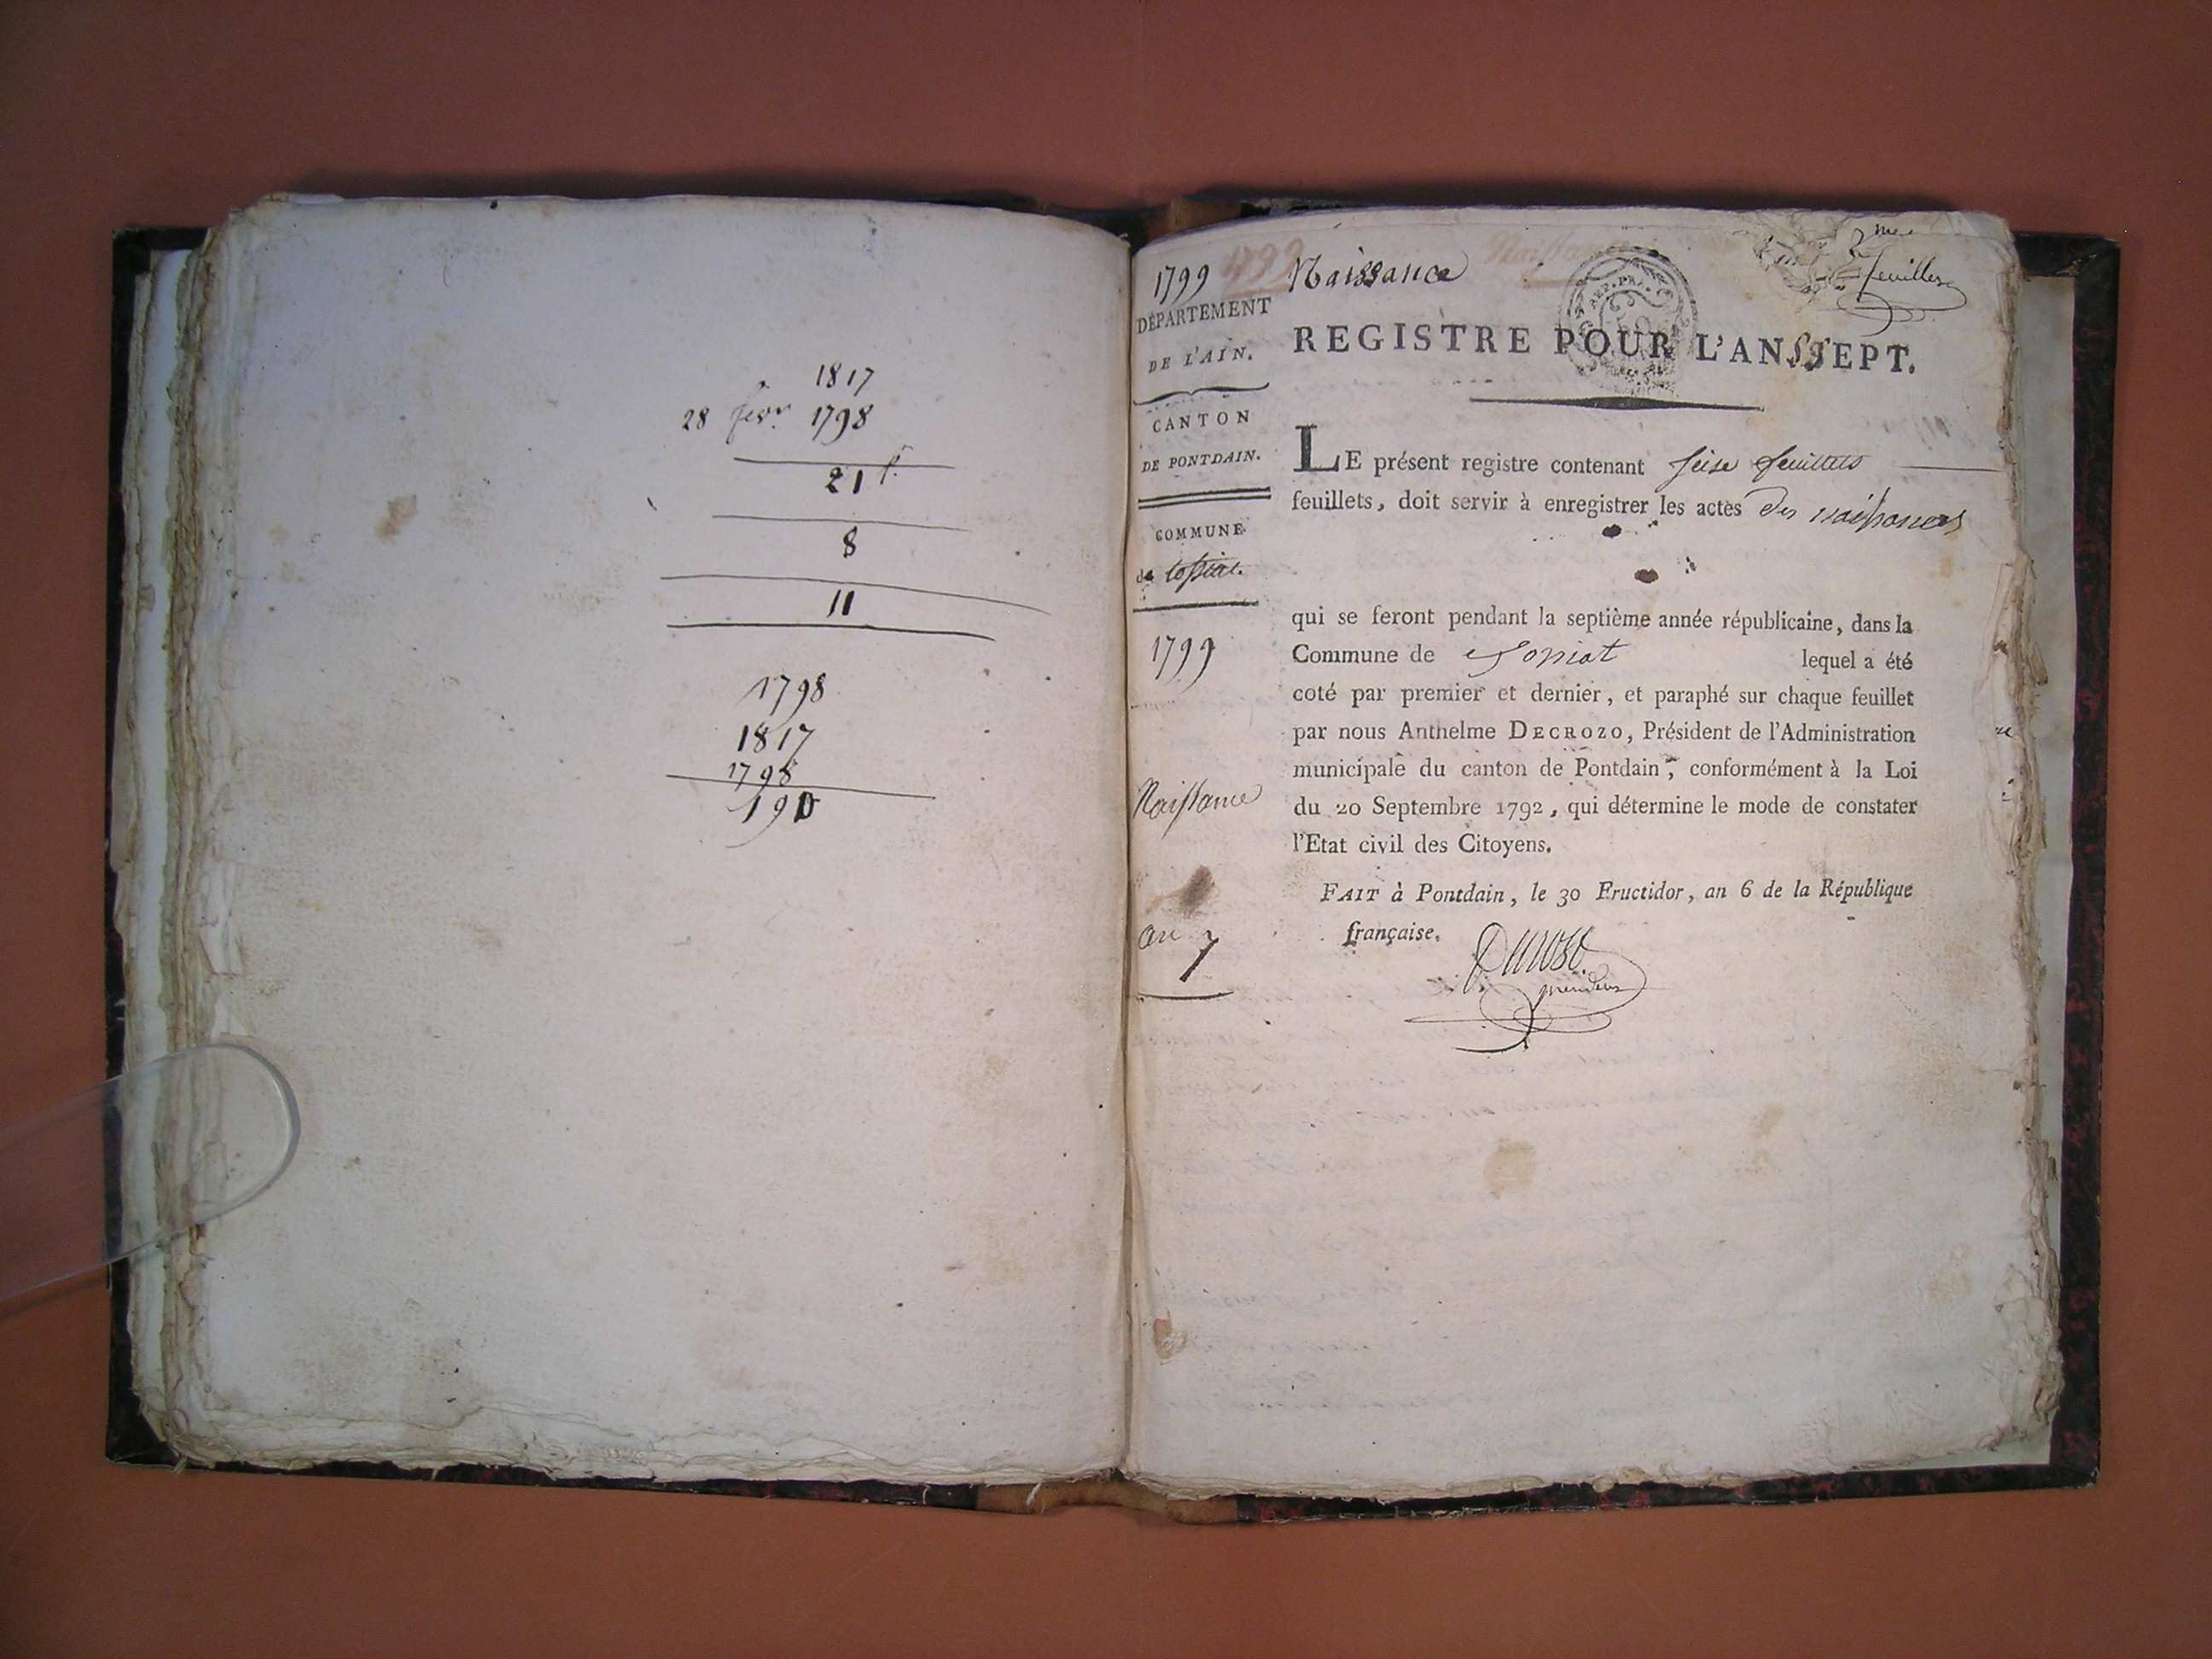 1817
28 fevr. 1798
21
8
11
1798
1817
1798
190
1799 1799 Naissance
2me
feuillet
DÉPARTEMENT
DE L'AIN.
CANTON
DE PONTDAIN.
COMMUNE
de
1799
Naissance
an 7
REGISTRE POUR L'AN SEPT.
LE présent registre contenant seise feuillets
feuillets, doit servir à enregistrer les actes des naissances
qui se feront pendant la septième année républicaine, dans la
Commune de lequel a été
coté par premier et dernier, et paraphé sur chaque feuillet
par nous Anthelme DECROZO, Président de l'Administration
municipale du canton de Pontdain, conformément à la Loi
du 20 Septembre 1792, qui détermine le mode de constater
l'Etat civil des Citoyens.
FAIT à Pontdain, le 30 Fructidor, an 6 de la République
française.